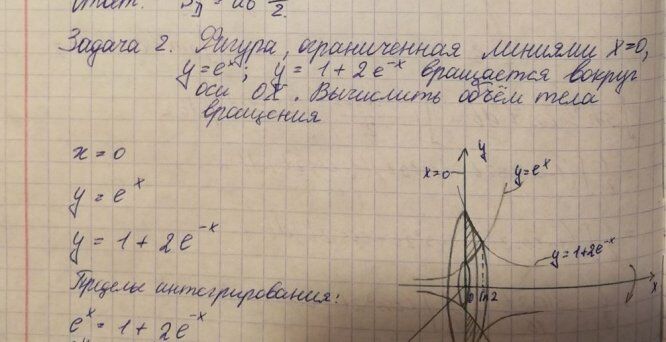 Задача 2. Фигура, ограниченная линиями x=0,
y=eˣ; y=1+2e⁻ˣ вращается вокруг
оси OX. Вычислить объём тела
вращения
x=0
y=eˣ
y=1+2e⁻ˣ
Пределы интегрирования:
eˣ=1+2e⁻ˣ
y
x=0
y=eˣ
y=1+2e⁻ˣ
0
ln2
x